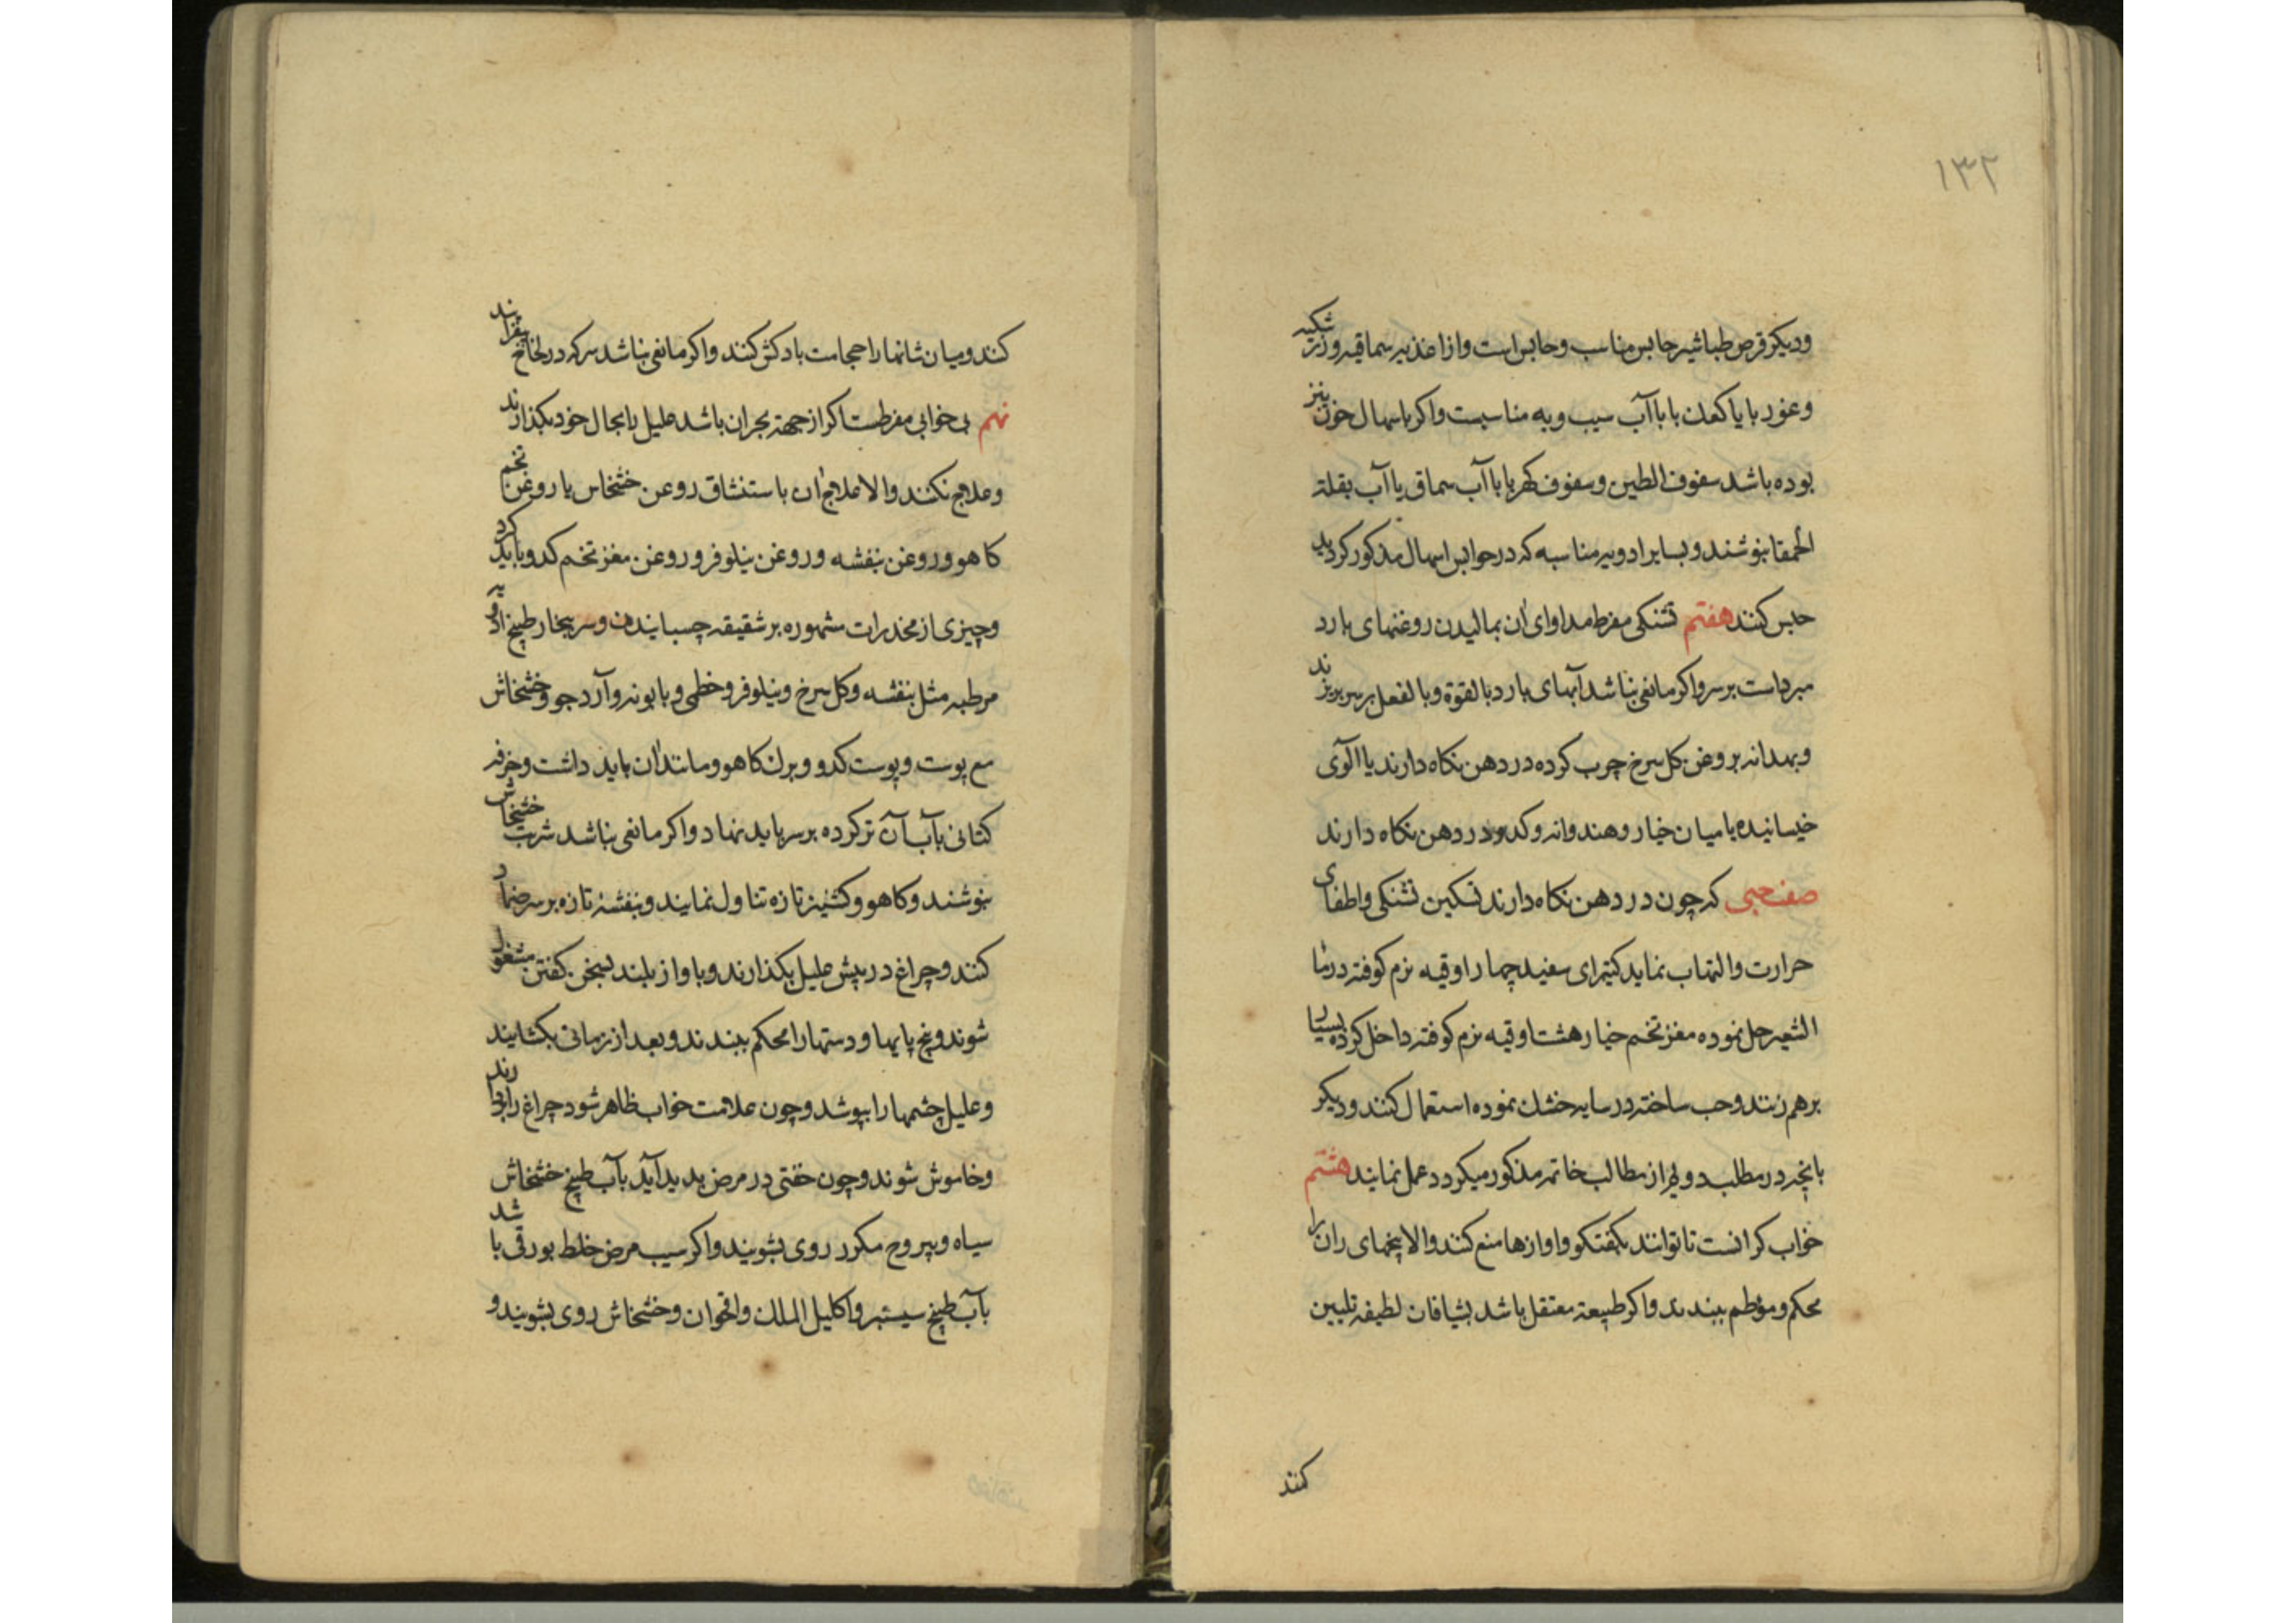 ۱۳۲
ودیکر قرص طباشیر حابس مناسب وحابس است واز اغذیه سماقیه وزرشکیه
وعوره با یا کعك با با آب سیب وبه مناسبست واکر باسهال خون نیز
بوده باشد سفوف الطین وسفوف کهربا با آب سماق یا آب بقلة
الحمقا بنوشند وبسایر ادویه مناسبه که در حوابس اسهال مذکور کردید
حبس کنند هفتم تشنکی مفرط مداوای ان بمالیدن روغنهای بارد
مبرداست برسر واکر مانعی نباشد آبهای بارد بالقوة وبالفعل برسر بریزند
وبهدانه بروغن کل سرخ چرب کرده در دهن نکاه دارند یا الآلوی
خیسانیده یا میان خیار وهندوانه وکدو در دهن نکاه دارند
صفت حبی که چون در دهن نکاه دارند تسکین تشنکی واطفای
حرارت والتهاب نماید کتیرای سفید چهار اوقیه نرم کوفته در ماء
الشعیر حل نموده مغز تخم خیار هشت اوقیه نرم کوفته داخل کرده بسیار
برهم زنند وحب ساخته در سایه خشك نموده استعمال کنند ودیکر
بانچه در مطلب دویم از مطالب خاتمه مذکور میکردد عمل نمایند هشتم
خواب کرانست تا توانند بکفتکو واوازها منع کنند والا بیخهای ران را
محکم ومؤطم ببندند واکر طبیعة معتقل باشد بشیافات لطیفه تلیین
کنند
کنند ومیان شانها را حجامت بادکش کنند واکر مانعی نباشد سرکه در لخالخ بیفزایند
نهم بی خوابی مفرطست اکر از جهة بحران باشد علیل را بحال خود بکذارند
وعلاج نکنند والا علاج ان باستنشاق روغن خشخاش یا روغن تخم
کاهو وروغن بنفشه وروغن نیلوفر وروغن مغز تخم کدو باید کرد
وچیزی از مخدرات مشهوره بر شقیقه چسبانیدن وسر ببخار طبیخ ادویه
مرطبه مثل بنفشه وکل سرخ ونیلوفر وخطمی وبابونه وآرد جو وخشخاش
مع پوست وپوست کدو وبرك کاهو ومانند ان باید داشت وخرفه
کتانی بآب آن تر کرده بر سر باید نهاد واکر مانعی نباشد شربت خشخاش
بنوشند وکاهو وکشنیز تازه تناول نمایند وبنفشه تازه برسر ضماد
کنند وچراغ در پیش علیل بکذارند وباواز بلند بسخن کفتن مشغول
شوند وبیخ پایها ودستها را محکم ببندند وبعد از زمانی بکشایند
وعلیل چشمها را بپوشد وچون علامت خواب ظاهر شود چراغ را بردارند
وخاموش شوند وچون خفتی در مرض پدید آید بآب طبیخ خشخاش
سیاه ویبروح مکرر روی بشویند واکر سبب مرض خلط بورقی باشد
بآب طبیخ سیسنبر واکلیل الملك واقحوان وخشخاش روی بشویند و